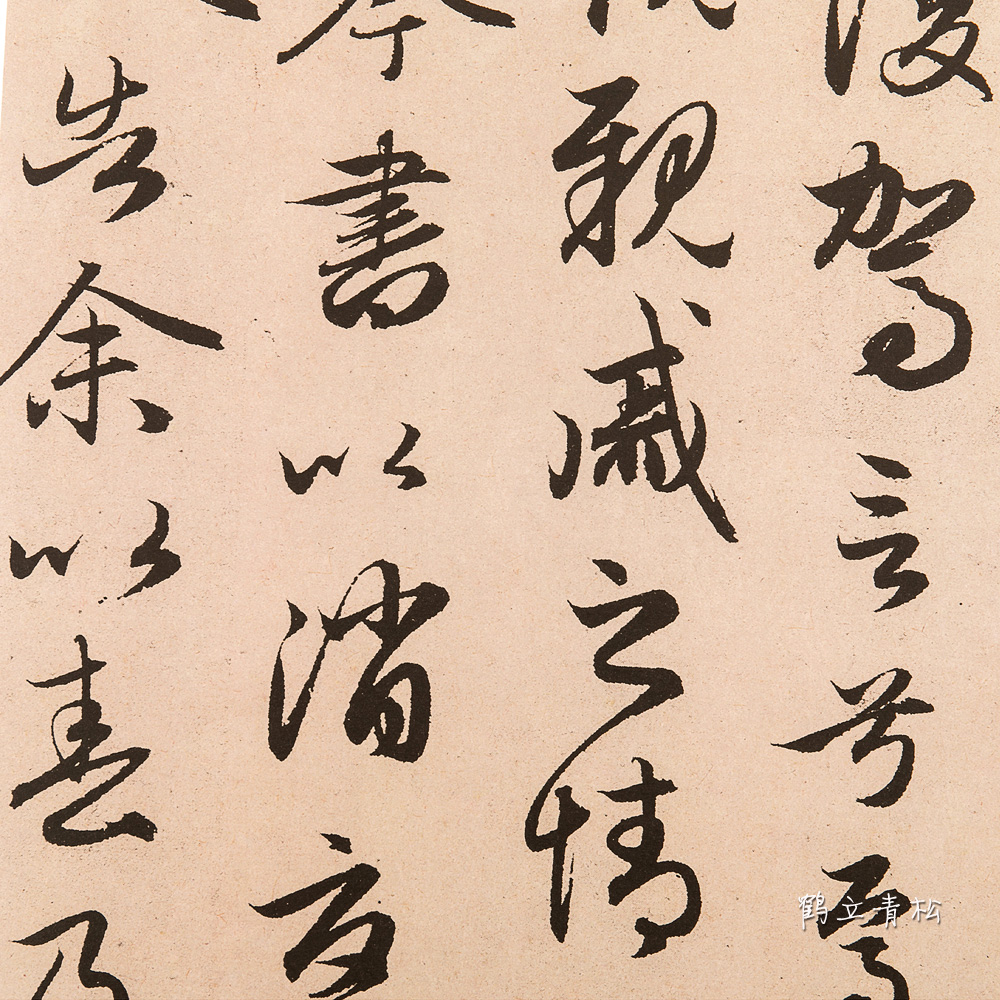 復駕言兮焉
親戚之情
琴書以消憂
告余以春及
鹤立青松